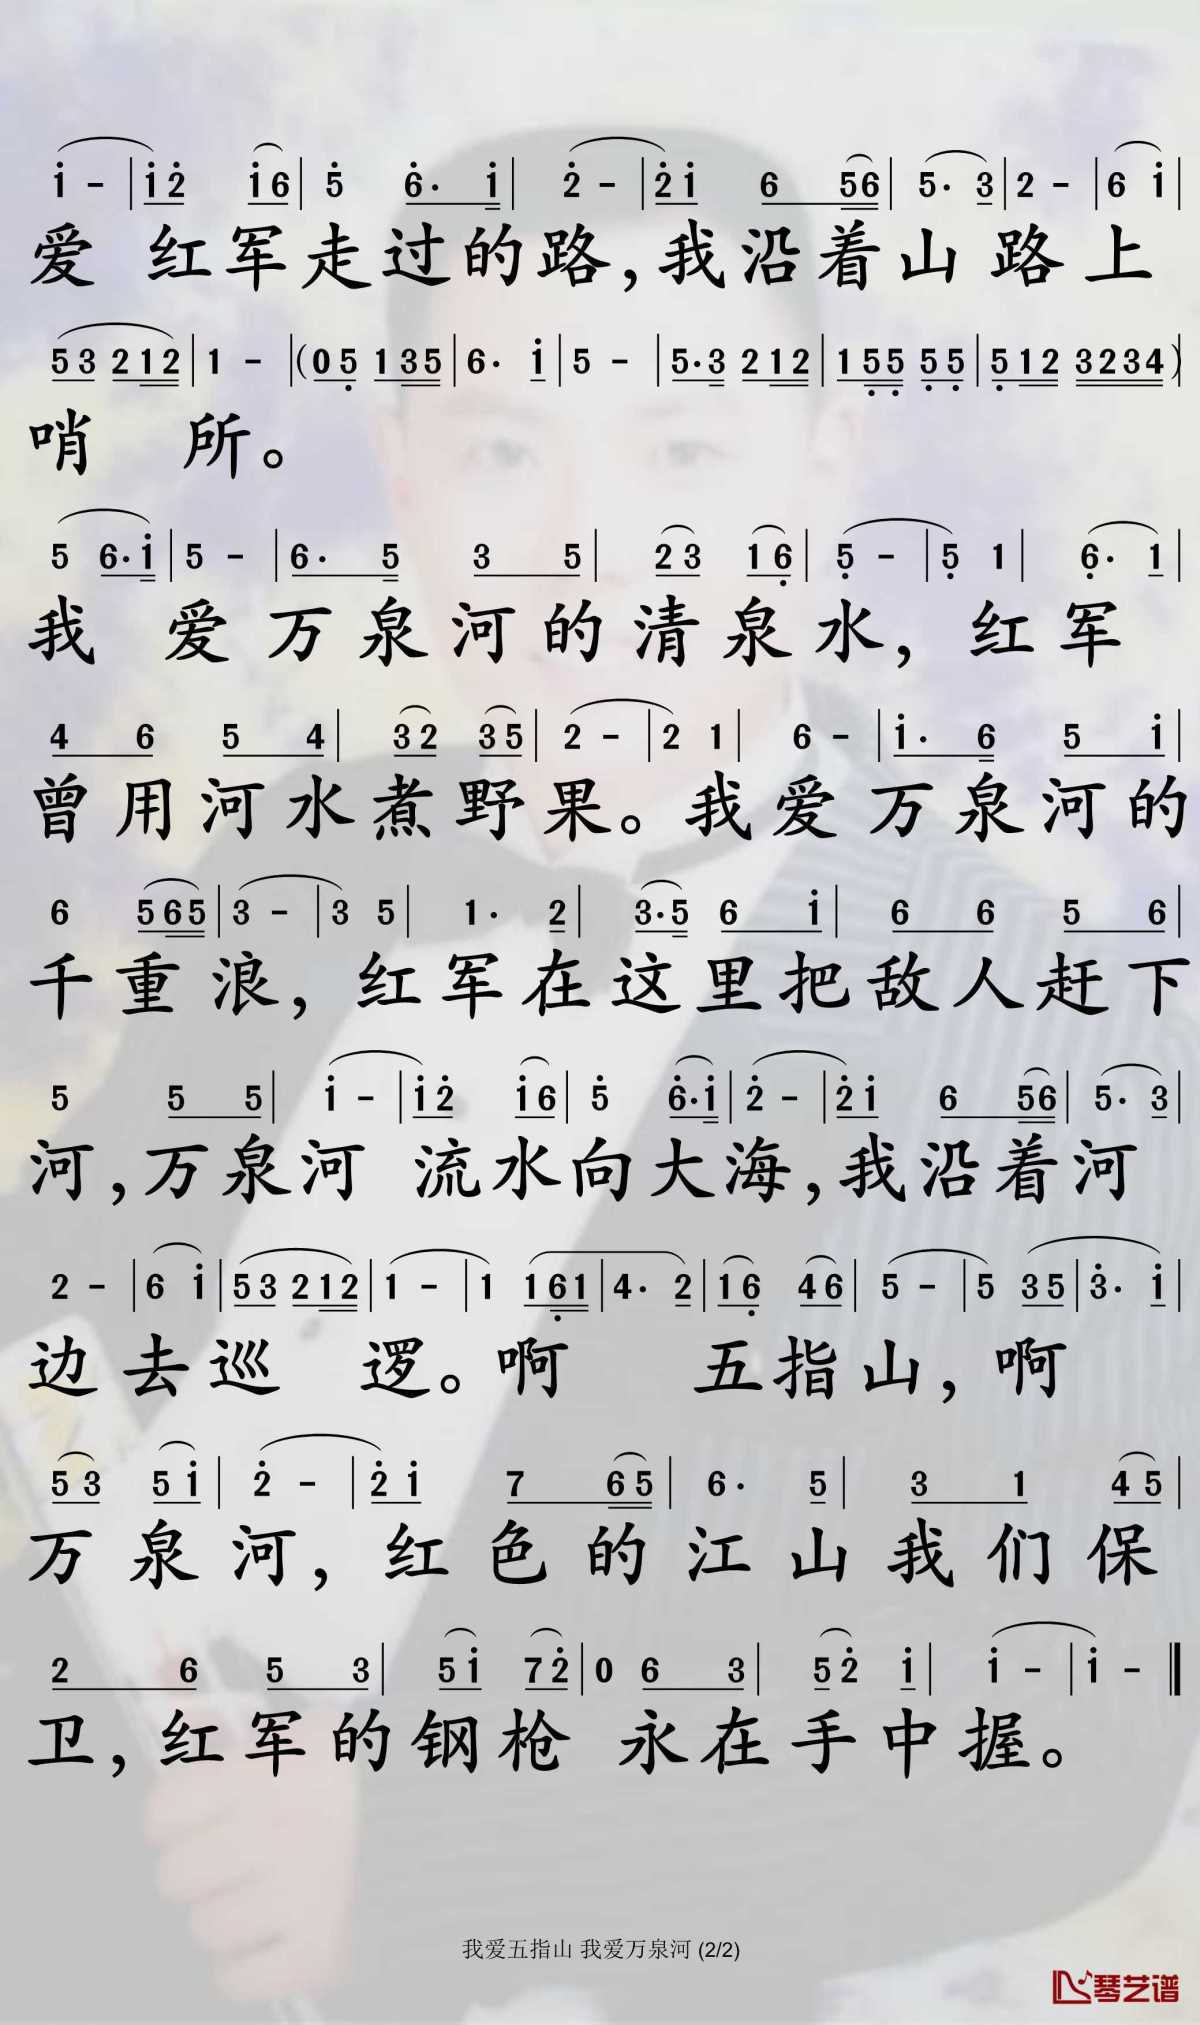 i - | i 2 i 6 | 5 6· i | 2 - | 2 i 6 56 | 5· 3 | 2 - | 6 i |
爱 红军走过的路,我沿着山路上
53 212 | 1 - | (05 135 | 6· i | 5 - | 5·3 212 | 155 55 | 512 3234)
哨 所。
5 6·i | 5 - | 6· 5 3 5 | 23 16 | 5 - | 5 1 6· 1 |
我 爱万泉河的清泉水,红军
4 6 5 4 | 32 35 | 2 - | 2 1 | 6 - | i· 6 5 i |
曾用河水煮野果。我爱万泉河的
6 565 | 3 - | 3 5 | 1· 2 | 3·5 6 i | 6 6 5 6 |
千重浪,红军在这里把敌人赶下
5 5 5 | i - | i 2 i 6 | 5 6·i | 2 - | 2 i 6 56 | 5· 3 |
河,万泉河 流水向大海,我沿着河
2 - | 6 i | 53 212 | 1 - | 1 161 | 4· 2 | 16 46 | 5 - | 5 35 | 3· i |
边去巡 逻。啊 五指山,啊
53 5 i | 2 - | 2 i 7 65 | 6· 5 | 3 1 45 |
万泉河,红色的江山我们保
2 6 5 3 | 5 i 7 2 | 0 6 3 | 5 2 i | i - | i - |
卫,红军的钢枪 永在手中握。
我爱五指山 我爱万泉河 (2/2)
琴艺谱